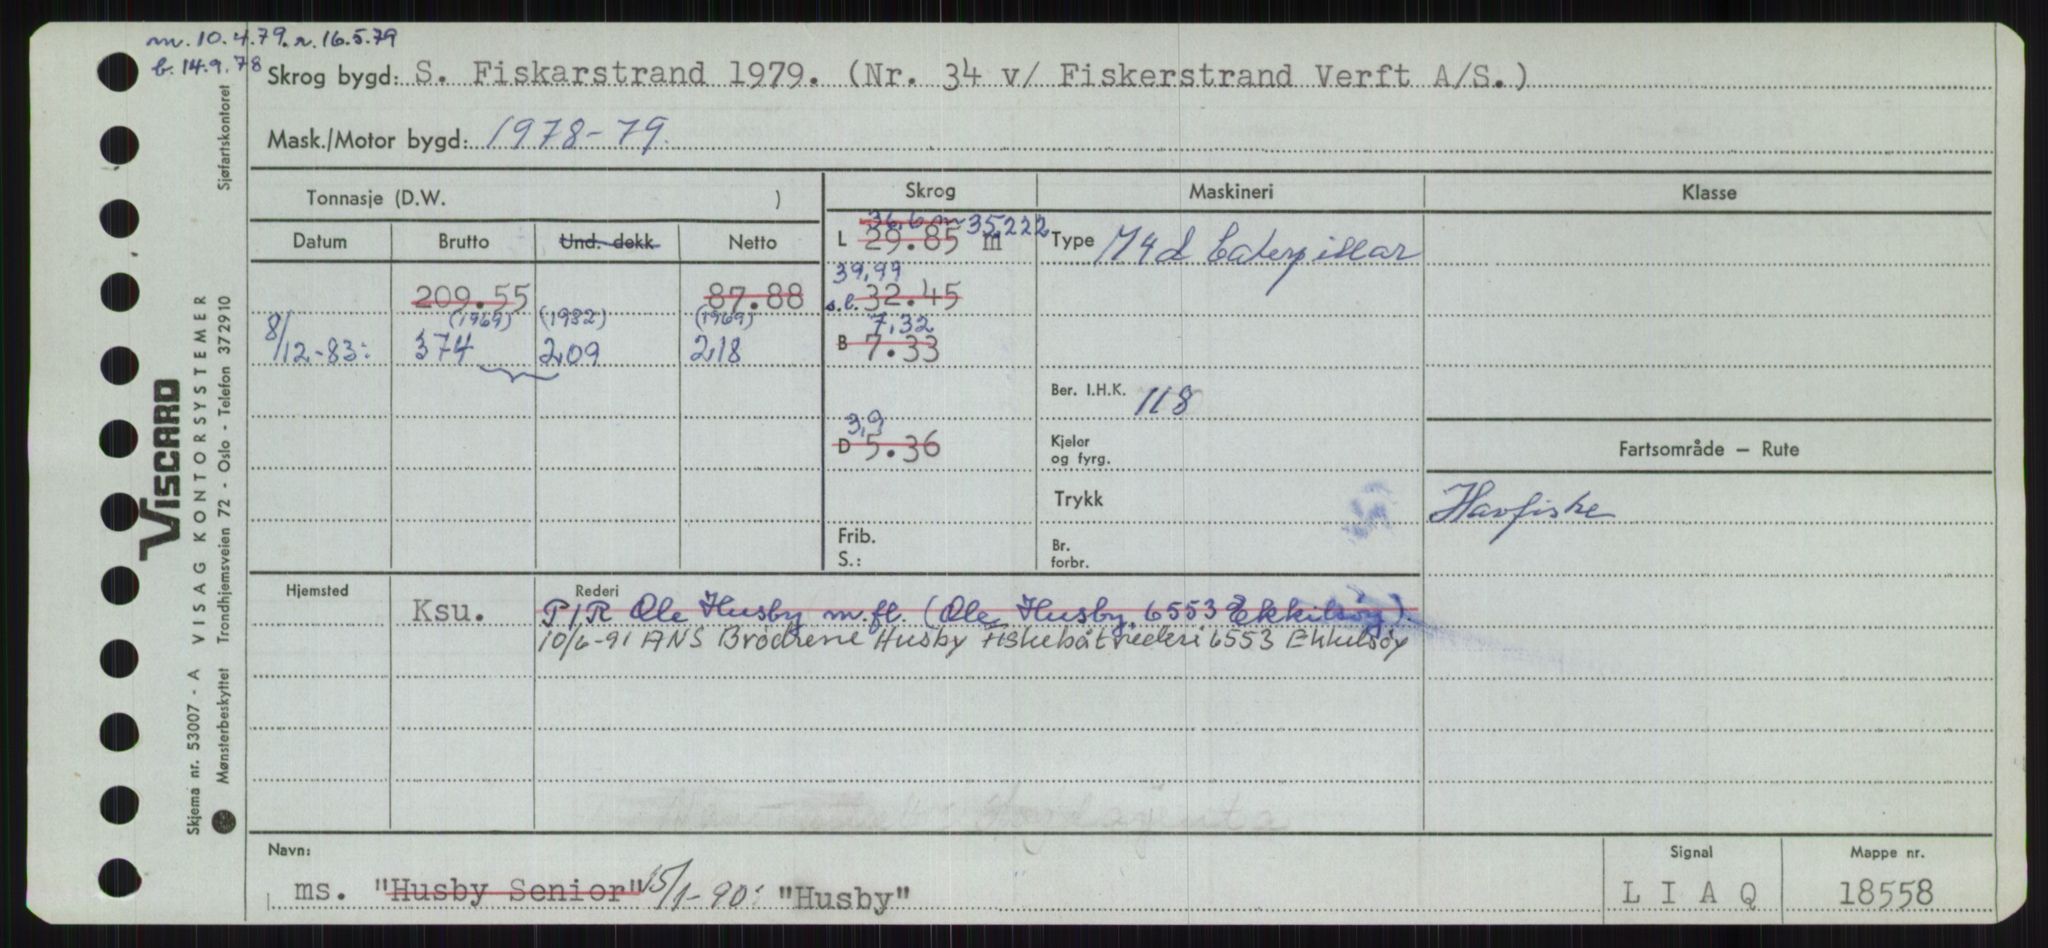 m. 10.4.79. r. 16.5.79
b. 14.9.78
Skrog bygd: S. Fiskarstrand 1979. (Nr. 34 v/ Fiskerstrand Verft A/S.)
Mask./Motor bygd: 1978-79.
Tonnasje (D.W. )
Skrog
Maskineri
Klasse
Datum
Brutto
Und. dekk
Netto
36,6 m 35,222
L 29.85 m
Type M4d Caterpillar
209.55
87.88
39,99
s.l. 32.45
(1969) (1982) (1969)
8/12-83: 374 209 218
7,32
B 7.33
Ber. I.H.K. 118
3,9
D 5.36
Kjeler
og fyrg.
Fartsområde — Rute
Trykk
Havfiske
Frib.
S.:
Br.
forbr.
Hjemsted
Rederi
Ksu. P/R Ole Husby m.fl. (Ole Husby, 6553 Ekkilsøy).
10/6-91 ANS Brødrene Husby Fiskebåtrederi 6553 Ekkilsøy
Navn:
ms. "Husby Senior" 15/1-90: "Husby"
Signal
L I A Q
Mappe nr.
18558
VISCARD
Skjema nr. 53007 - A VISAG KONTORSYSTEMER
Mønsterbeskyttet Trondhjemsveien 72 - Oslo - Telefon 372910
Sjøfartskontoret